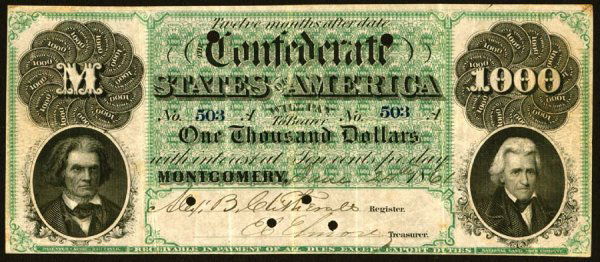 Twelve months after date
Confederate
M
1000
STATES OF AMERICA
WILL PAY
No. 503 A
To Bearer
No. 503 A
One Thousand Dollars
with interest at Ten cents per day
MONTGOMERY,
Alex. B. Clitherall
Register.
E. C. Elmore
Treasurer.
RECEIVABLE IN PAYMENT OF ALL DUES EXCEPT EXPORT DUTIES